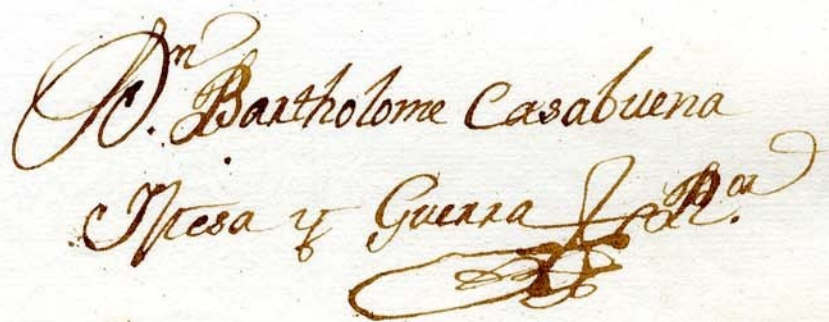 Dn. Bartholome Casabuena
Mesa y Guerra Ror.